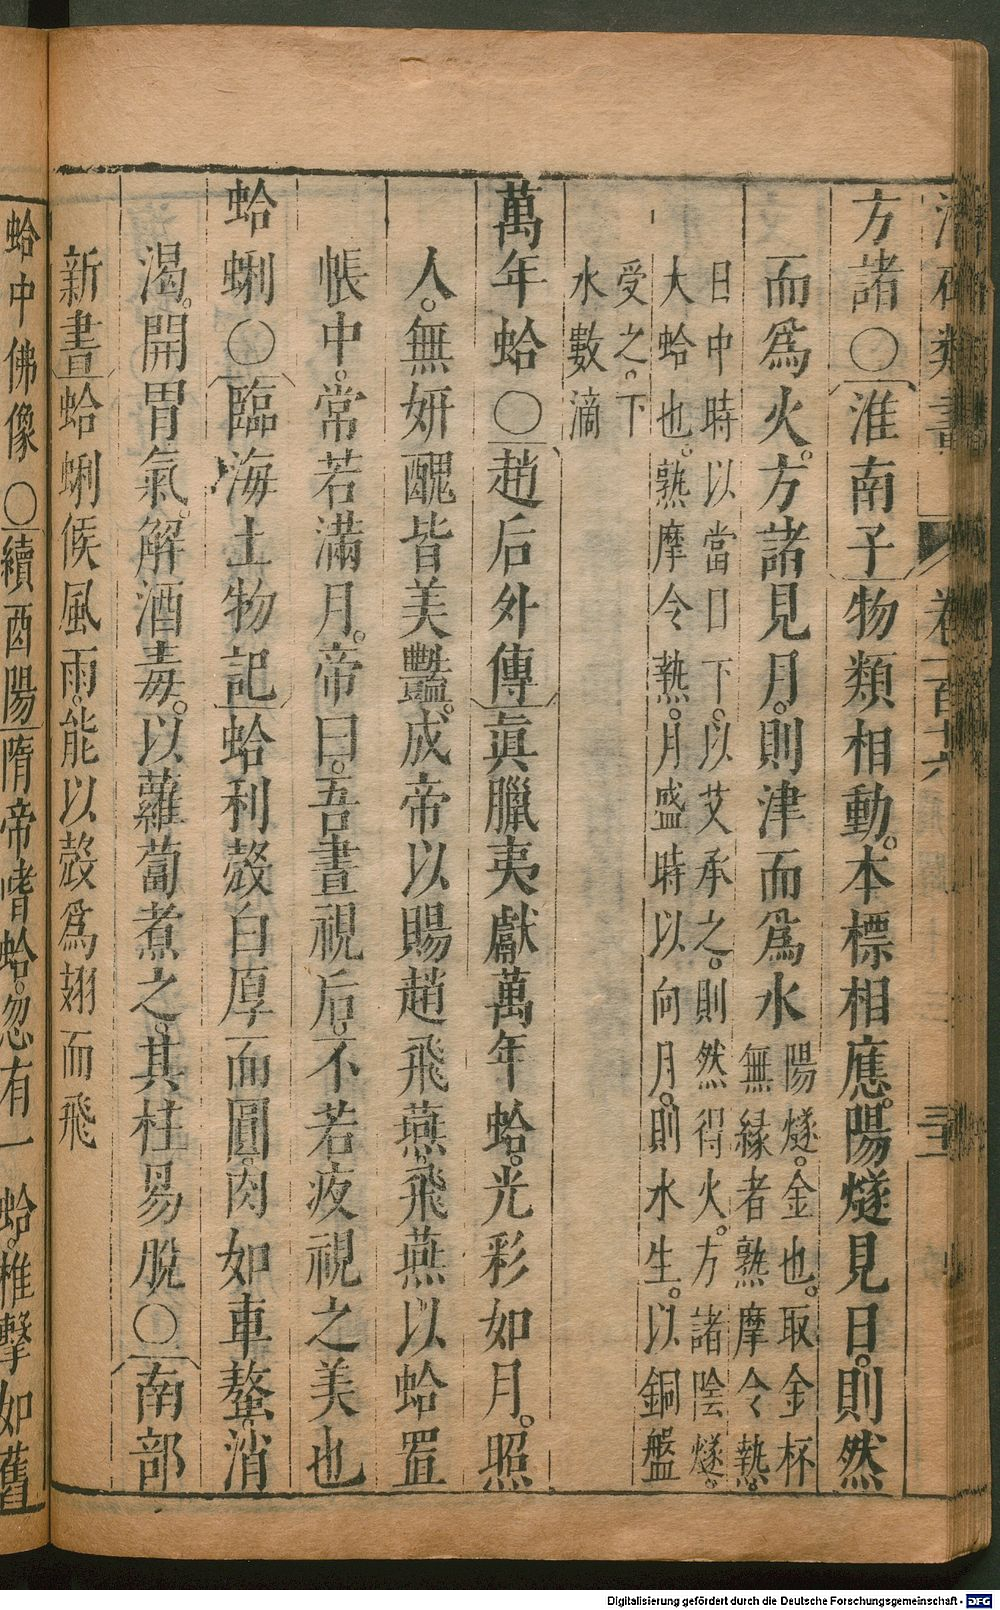 方諸○淮南子物類相動。本標相應。陽燧見日。則然
而爲火。方諸見月。則津而爲水
陽燧。金也。取金杯
無緣者熟摩令熱。
日中時以當日下。以艾承之。則然得火。方諸陰燧。
大蛤也。熟摩令熱。月盛時以向月。則水生。以銅盤
受之。下
水數滴
萬年蛤○趙后外傳眞臘夷獻萬年蛤。光彩如月。照
人。無妍醜皆美豔。成帝以賜趙飛燕。飛燕以蛤罝
帳中。常若滿月。帝曰。吾晝視后。不若夜視之美也
蛤蜊○臨海土物記蛤利殼白厚而圓。肉如車螯。消
渴。開胃氣。解酒毒。以蘿蔔煮之。其柱易脫○南部
新晝蛤蜊候風雨。能以殼爲翅而飛
蛤中佛像○續酉陽隋帝嗜蛤。忽有一蛤。椎擊如舊
Digitalisierung gefördert durch die Deutsche Forschungsgemeinschaft - DFG